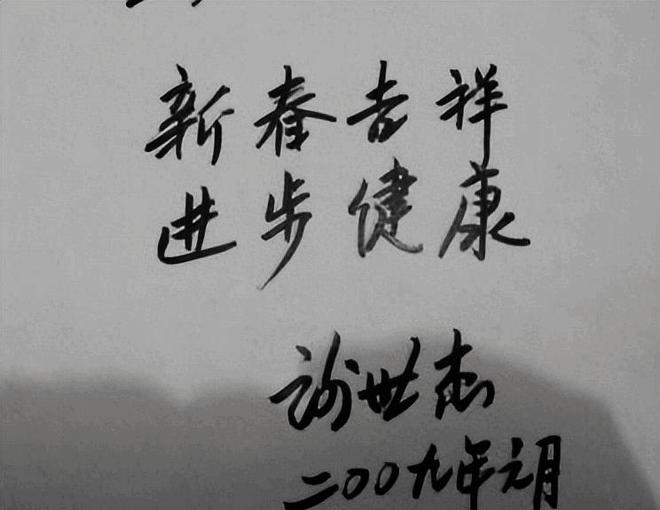 新春吉祥
进步健康
谢世杰
二〇〇九年元月